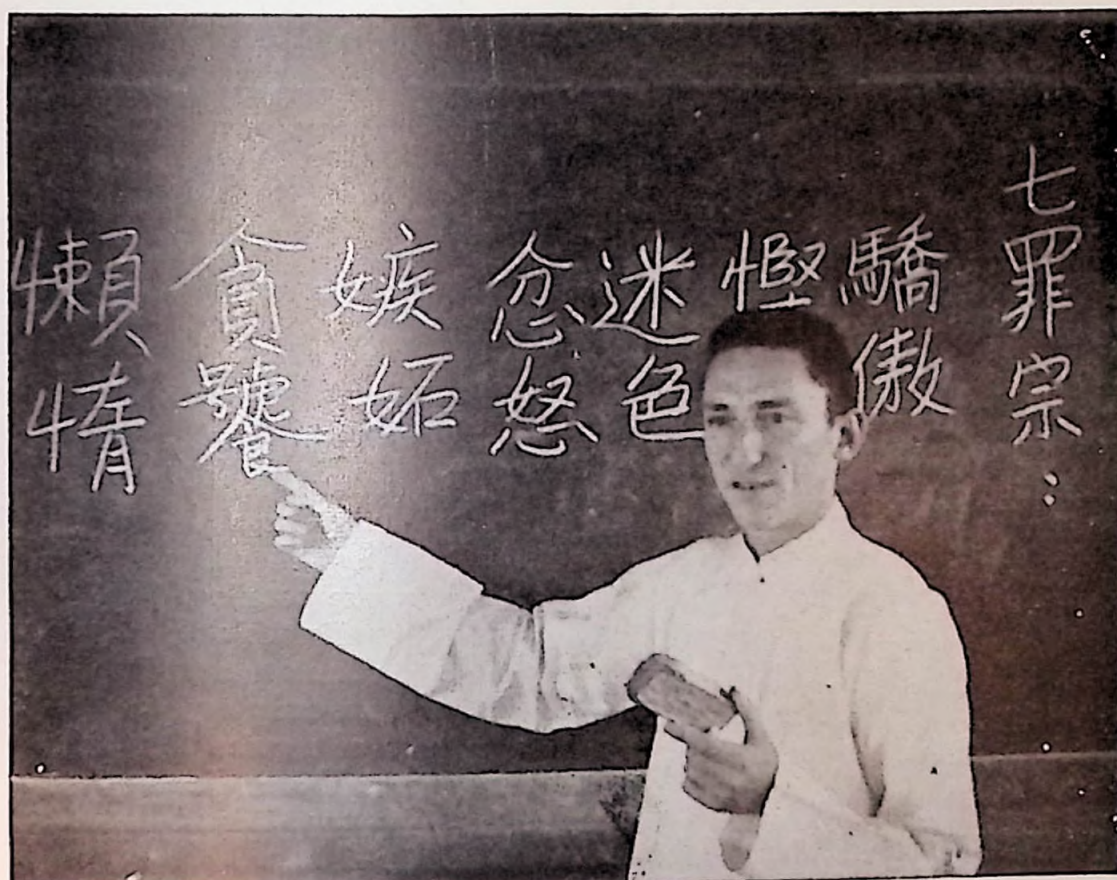 七罪宗：
驕傲
慳
迷色
忿怒
嫉妬
貪饕
懶惰